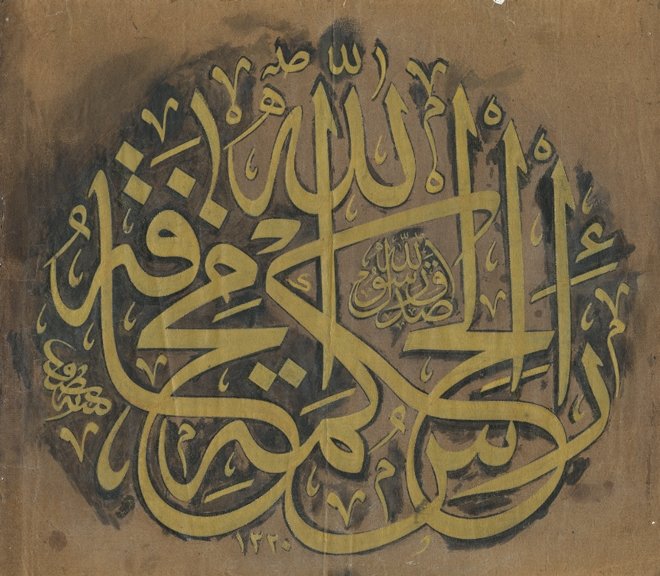 رأس الحكمة مخافة الله
صدق رسول الله
١٣٢٠